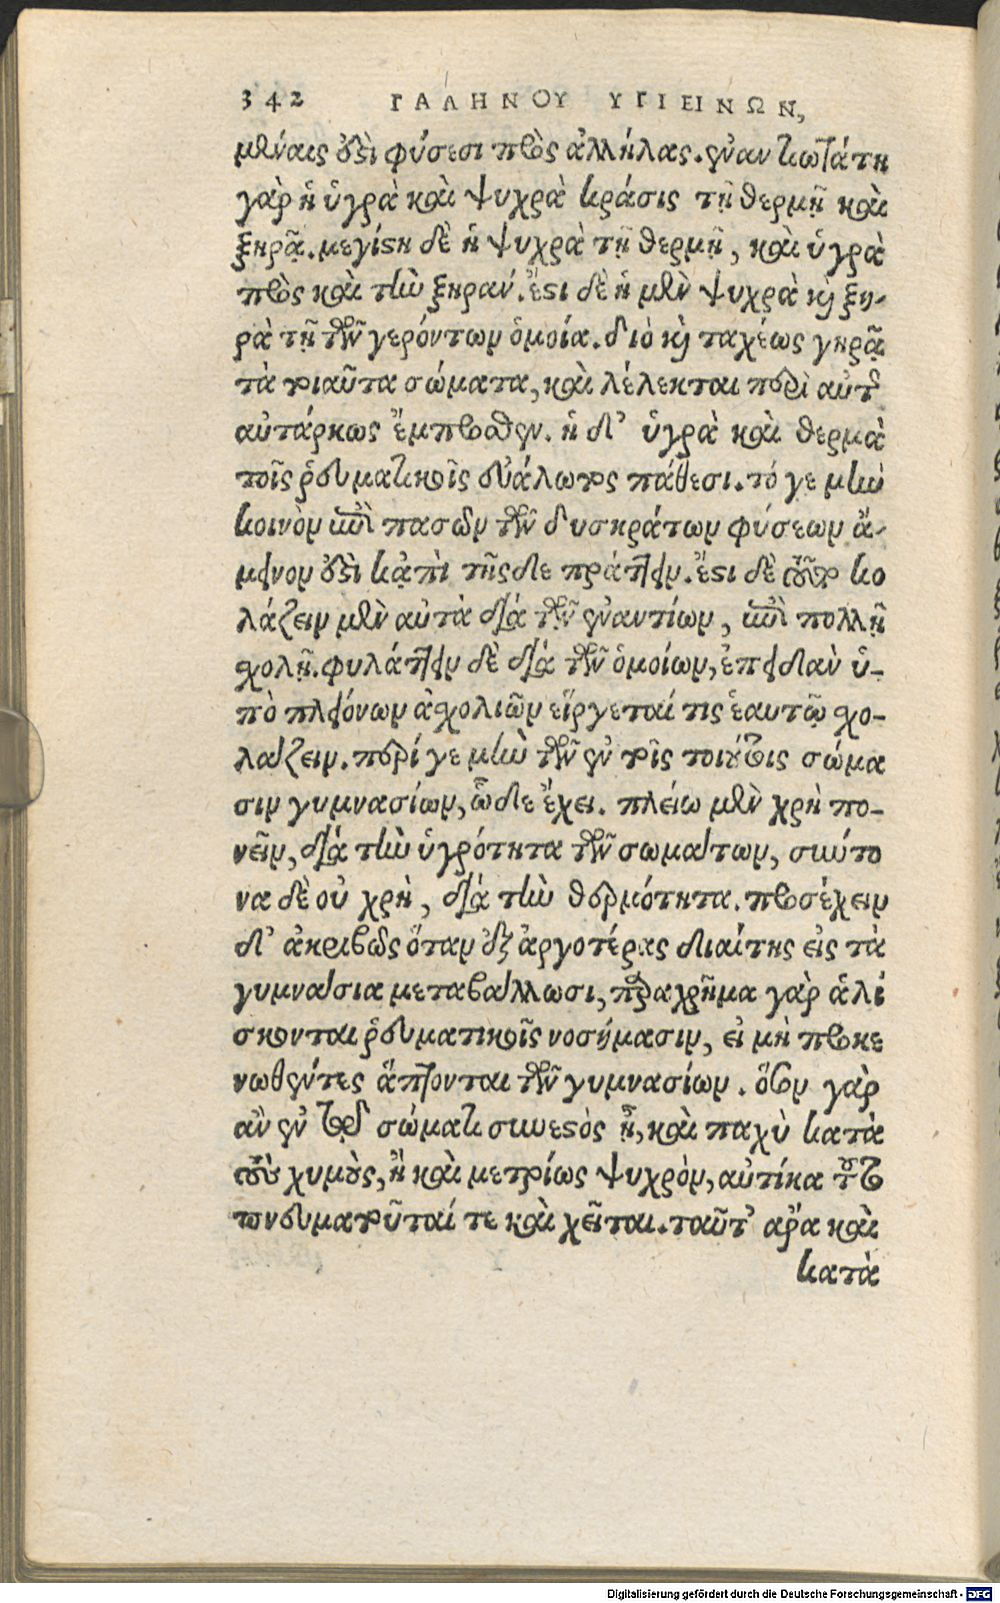 342 ΓΑΛΗΝΟΥ ΥΓΙΕΙΝΩΝ,
μέναις ἐστὶ φύσεσι πρὸς ἀλλήλας. ἐναντιωτάτη
γὰρ ἡ ὑγρὰ καὶ ψυχρὰ κράσις τῇ θερμῇ καὶ
ξηρᾷ. μεγίστη δὲ ἡ ψυχρὰ τῇ θερμῇ, καὶ ὑγρὰ
πρὸς καὶ τὴν ξηράν. ἔστι δὲ ἡ μὲν ψυχρὰ καὶ ξη-
ρὰ τῇ τῶν γερόντων ὁμοία. διὸ καὶ ταχέως γηρᾷ
τὰ τοιαῦτα σώματα, καὶ λέλεκται περὶ αὐτῶν
αὐτάρκως ἔμπροσθεν. ἡ δ' ὑγρὰ καὶ θερμὰ
τοῖς ῥευματικοῖς εὐάλωτος πάθεσι. τό γε μὴν
κοινὸν ἐπὶ πασῶν τῶν δυσκράτων φύσεων ἄ-
μεινον ἐστὶ κᾀπὶ τῆσδε πράττειν. ἔστι δὲ τοῦτο κο
λάζειν μὲν αὐτὰ διὰ τῶν ἐναντίων, ἐπὶ πολλῇ
σχολῇ. φυλάττειν δὲ διὰ τῶν ὁμοίων, ἐπειδὰν ὑ-
πὸ πλειόνων ἀσχολιῶν εἴργεταί τις ἑαυτῷ σχο-
λάζειν. περί γε μὴν τῶν ἐν τοῖς τοιούτοις σώμα
σιν γυμνασίων, ὧδε ἔχει. πλείω μὲν χρὴ πο-
νεῖν, διὰ τὴν ὑγρότητα τῶν σωμάτων, σύντο
να δὲ οὐ χρὴ, διὰ τὴν θερμότητα. προσέχειν
δ' ἀκριβῶς ὅταν ἐξ ἀργοτέρας διαίτης εἰς τὰ
γυμνάσια μεταβάλλωσι, παραχρῆμα γὰρ ἁλί
σκονται ῥευματικοῖς νοσήμασιν, εἰ μὴ προκε
νωθέντες ἅπτονται τῶν γυμνασίων. ὅσον γὰρ
ἂν ἐν τῷ σώματι συνεστὸς ᾖ, καὶ παχὺ κατὰ
τοὺς χυμοὺς, ἢ καὶ μετρίως ψυχρὸν, αὐτίκα τοῦτο
πνευματοῦταί τε καὶ χεῖται. ταῦτ' ἄρα καὶ
κατὰ
Digitalisierung gefördert durch die Deutsche Forschungsgemeinschaft - DFG